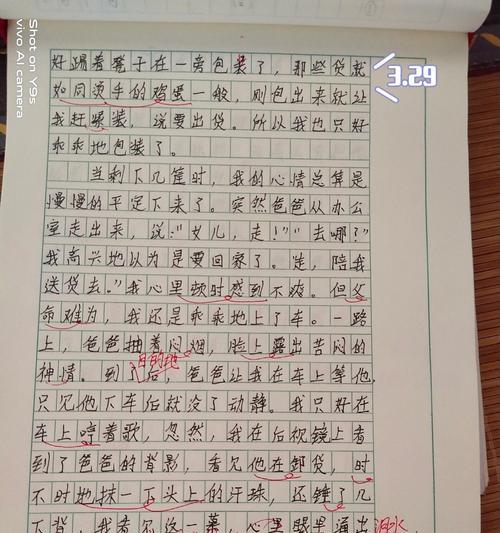 好蹋着凳子在一旁包装了，那些货就
如同烫手的鸡蛋一般，刚包出来就让
我赶紧装，说要出货。所以我也只好
乖乖地包装了。
当剩下几筐时，我的心情总算是
慢慢的平定下来了。突然爸爸从办公
室走出来，说："女儿，走！""去哪？"
我高兴地以为是要回家了。"走，陪我
送货去。"我心里顿时感到不爽。但父
命难为，我还是乖乖地上了车。一路
上，爸爸抽着闷烟，脸上露出苦闷的
目的地
神情。到了后，爸爸让我在车上等他，
只见他下车后就没了动静。我只好在
车上哼着歌，忽然，我在后视镜上看
到了爸爸的背影，看见他在卸货，时
不时地抹一下头上的汗珠，还锤了几
下背，我看见这一幕，心里眼早涌出泪水，
3.29
Shot on Y9s
vivo AI camera